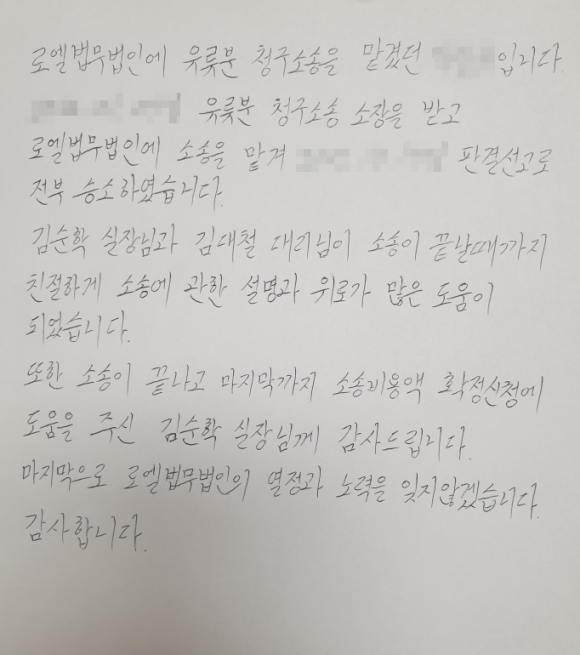 로엘법무법인에 유류분 청구소송을 맡겼던 입니다.
유류분 청구소송 소장을 받고
로엘법무법인에 소송을 맡겨 판결선고로
전부 승소하였습니다.
김순학 실장님과 김대철 대리님이 소송이 끝날때까지
친절하게 소송에 관한 설명과 위로가 많은 도움이
되었습니다.
또한 소송이 끝나고 마지막까지 소송비용액 확정신청에
도움을 주신 김순학 실장님께 감사드립니다.
마지막으로 로엘법무법인의 열정과 노력을 잊지않겠습니다.
감사합니다.